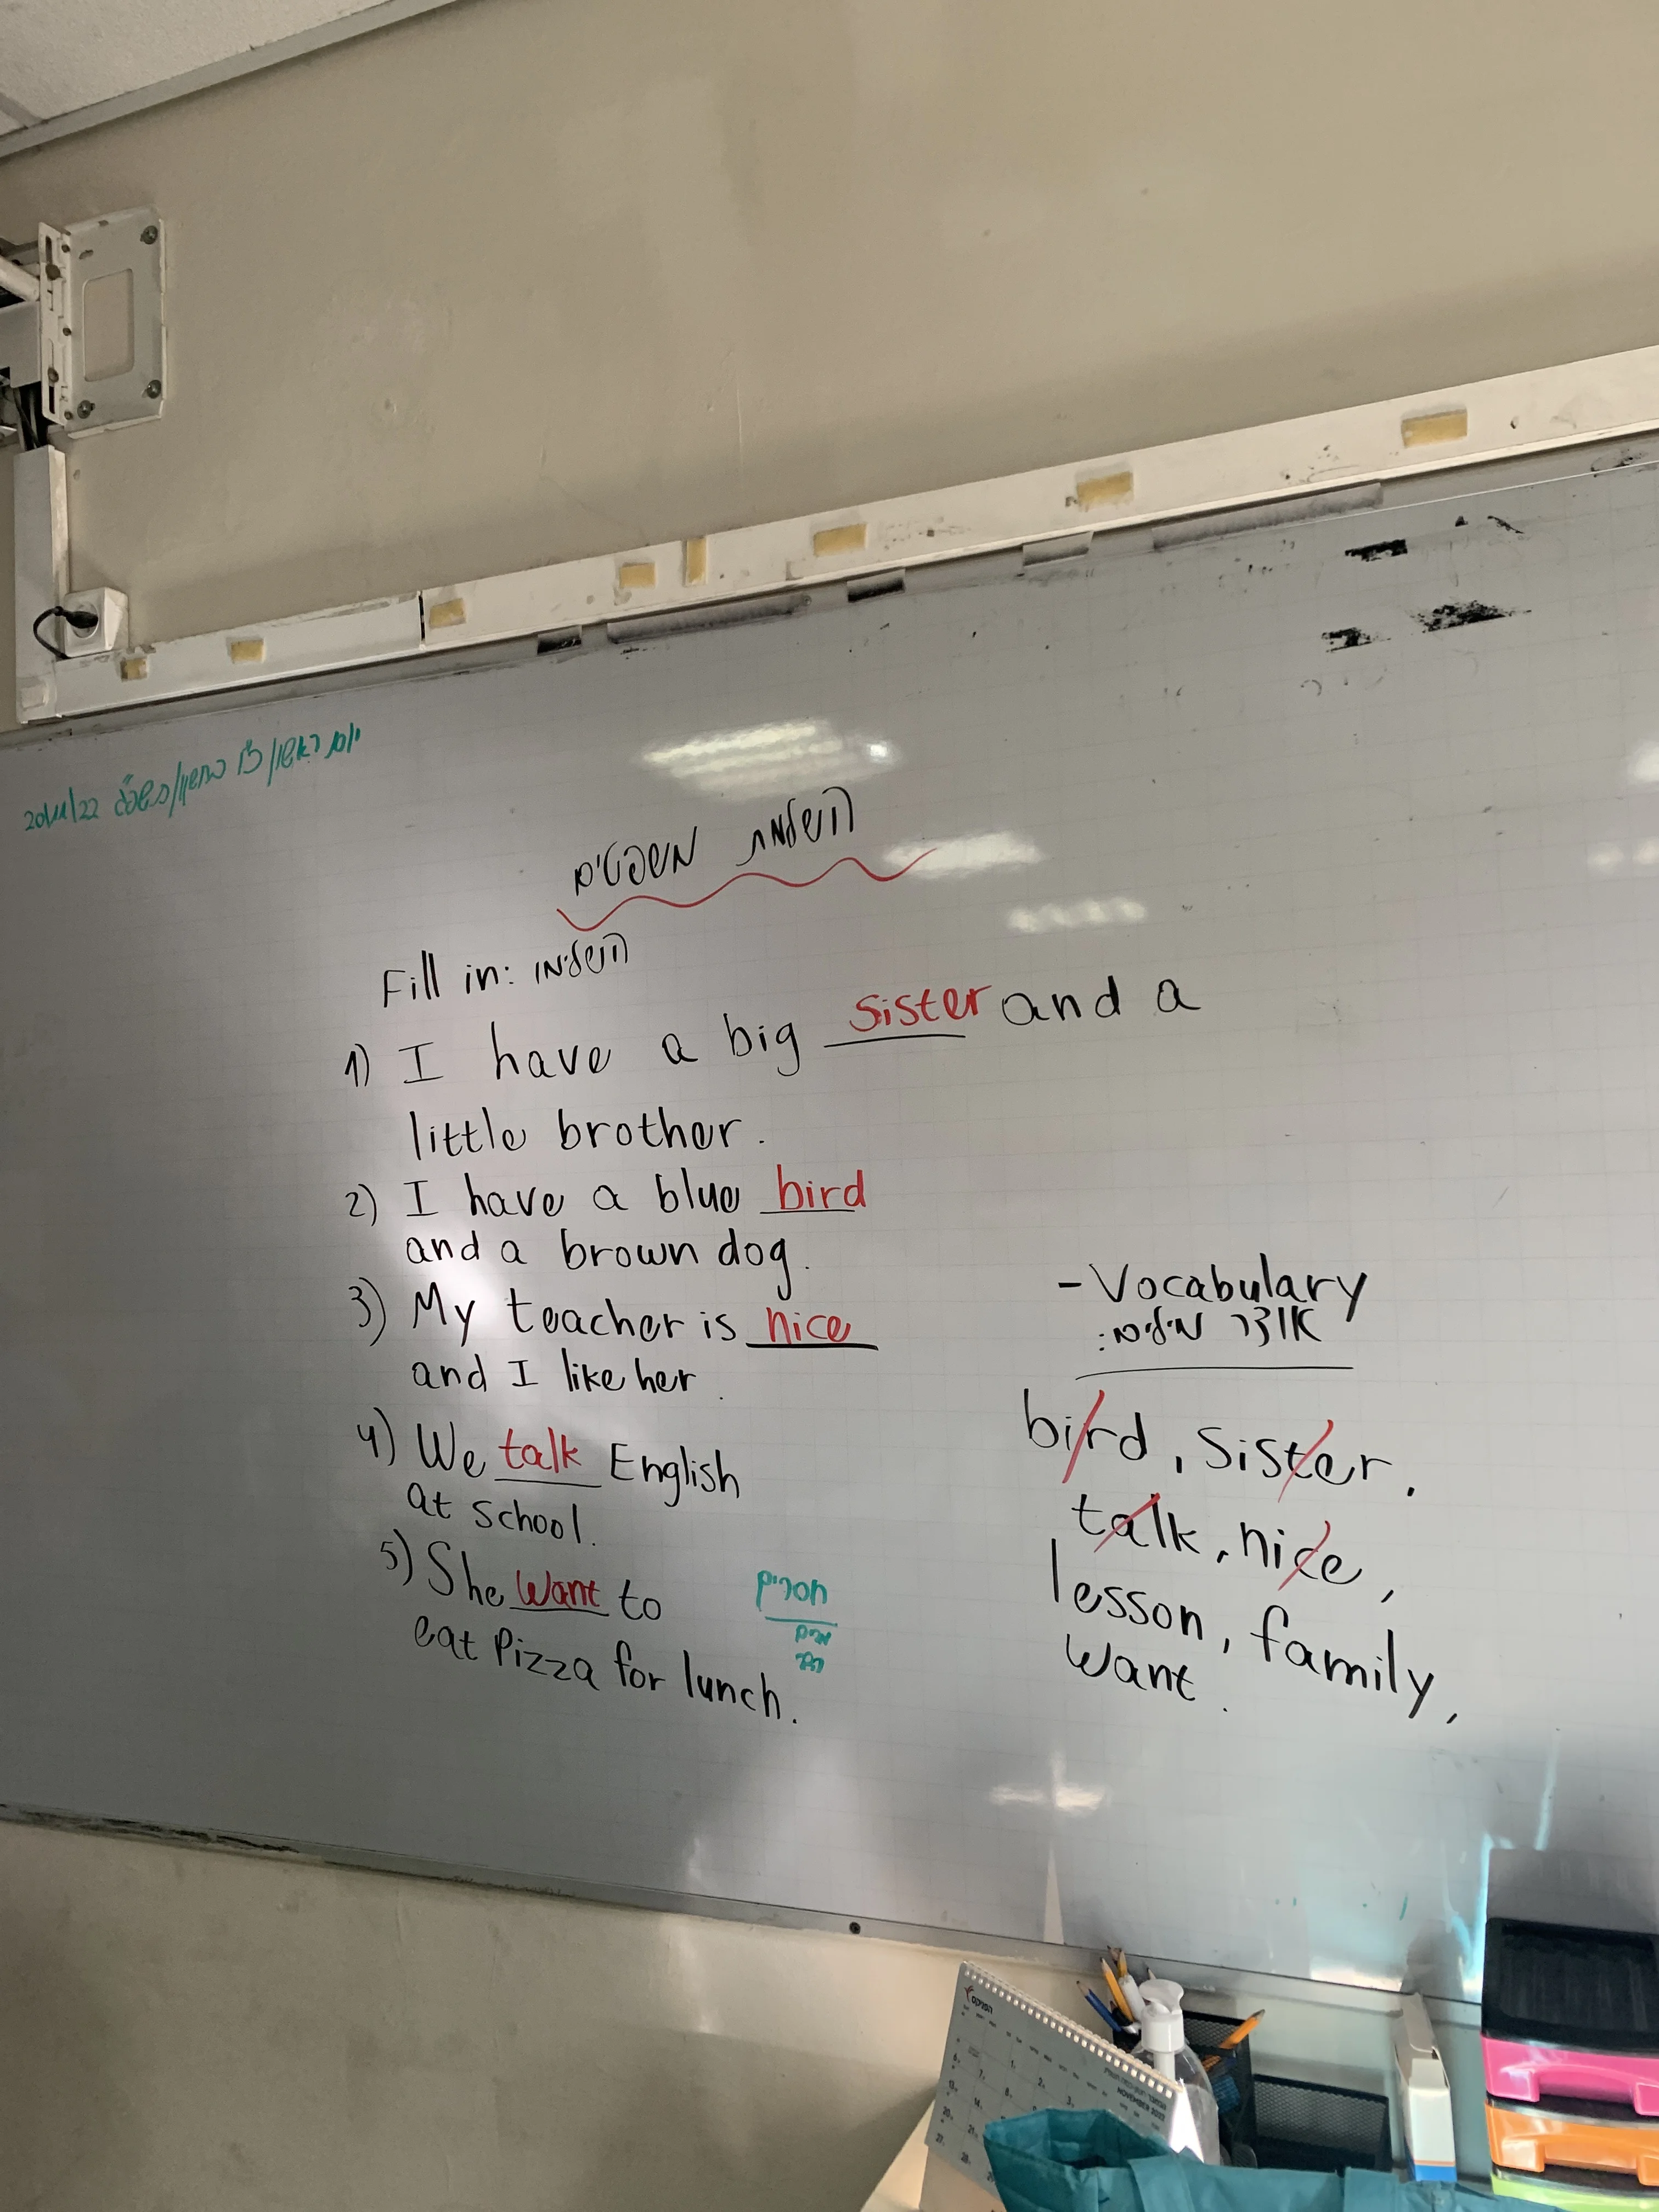 יום ראשון/כ"ו בחשוון/תשפ"ג 20/11/22
השלמת משפטים
Fill in: השלימו
1) I have a big sister and a
little brother.
2) I have a blue bird
and a brown dog.
3) My teacher is nice
and I like her.
4) We talk English
at school.
5) She want to
eat Pizza for lunch.
חסרים
- Vocabulary
אוצר מילים:
bird, sister,
talk, nice,
lesson, family,
want.
NOVEMBER 2022